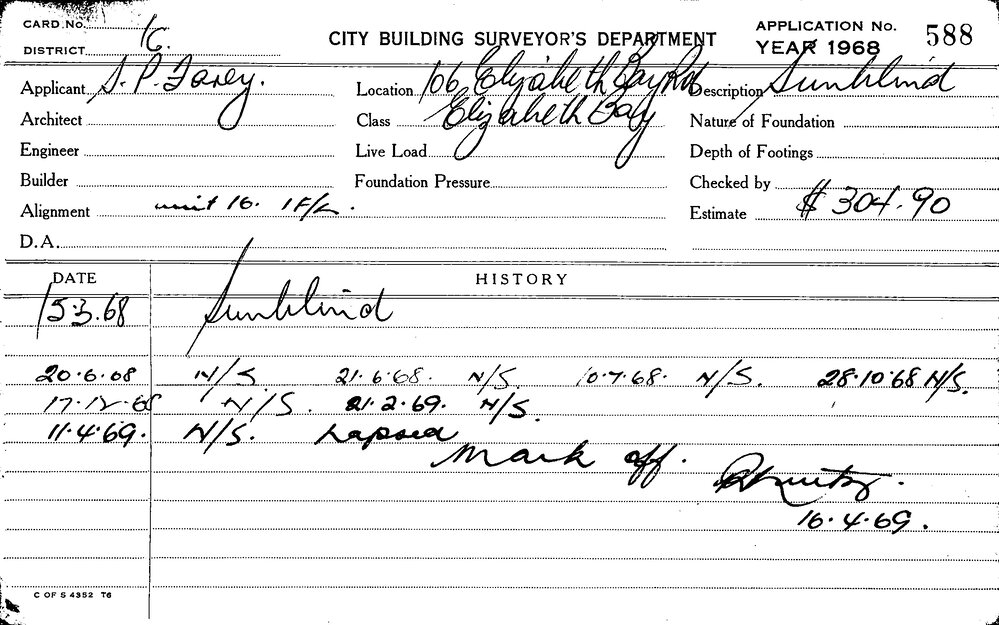 CARD No.
DISTRICT
CITY BUILDING SURVEYOR'S DEPARTMENT
APPLICATION No. 588
YEAR 1968
Applicant S. P. Farey. Location 106 Elizabeth Bay Rd Description Sunblind
Architect Class Elizabeth Bay Nature of Foundation
Engineer Live Load Depth of Footings
Builder Foundation Pressure Checked by
Alignment unit 16. 1F/L. Estimate $304.90
D.A.
DATE HISTORY
15.3.68 Sunblind
20.6.68 N/S 21.6.68. N/S. 10.7.68. N/S. 28.10.68 N/S.
17.12.68 N/S. 21.2.69. N/S.
11.4.69. N/S. Lapsed
Mark off.
16.4.69.
C OF S 4352 T6